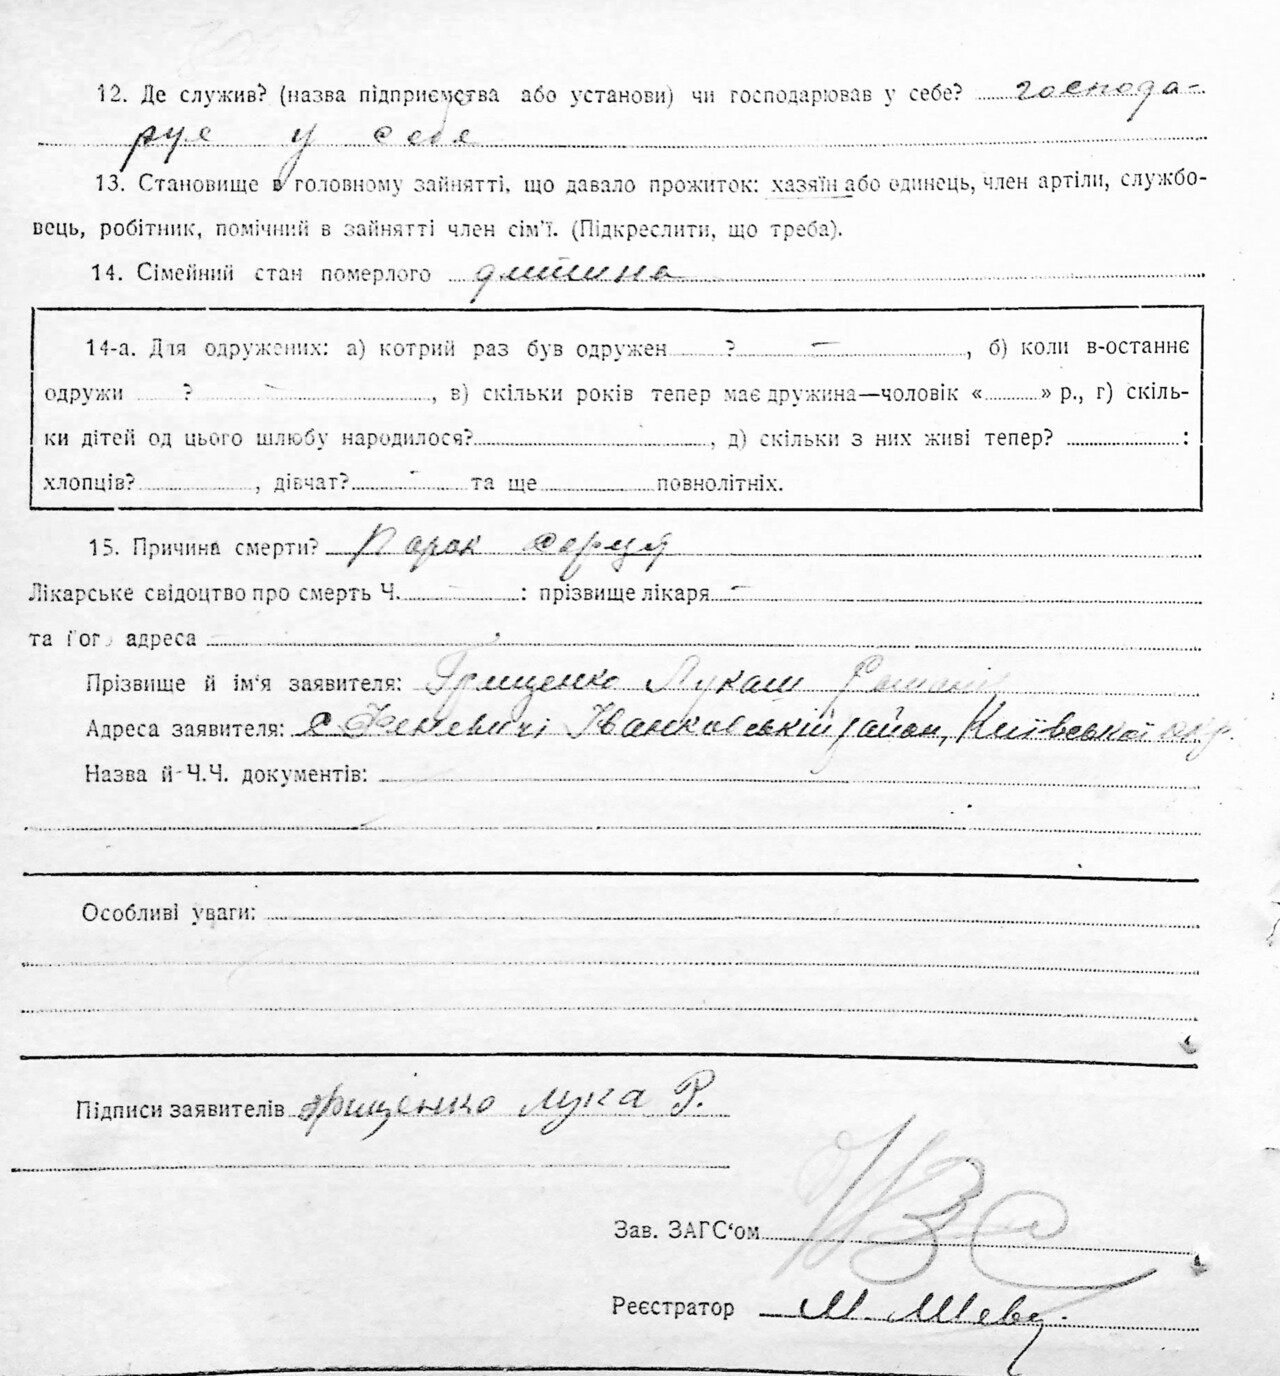 12. Де служив? (назва підприємства або установи) чи господарював у себе? господа-
рує у себе
13. Становище в головному зайнятті, що давало прожиток: хазяїн або одинець, член артіли, службо-
вець, робітник, помічний в зайнятті член сім'ї. (Підкреслити, що треба).
14. Сімейний стан померлого дитина
14-а. Для одружених: а) котрий раз був одружен ? —, б) коли в-останнє
одружи ? , в) скільки років тепер має дружина—чоловік «........» р., г) скіль-
ки дітей од цього шлюбу народилося? , д) скільки з них живі тепер? :
хлопців? , дівчат? - та ще повнолітніх.
15. Причина смерти? Парок серця
Лікарське свідоцтво про смерть Ч. : прізвище лікаря –
та його адреса
Прізвище й ім'я заявителя: Грищенко Лукаш
Адреса заявителя: с Феневичі Іванковській район, Київської окр.
Назва й Ч.Ч. документів:
Особливі уваги:
Підписи заявителів Грищенко Лука Р.
Зав. ЗАГС'ом
Реєстратор М. Шевч.